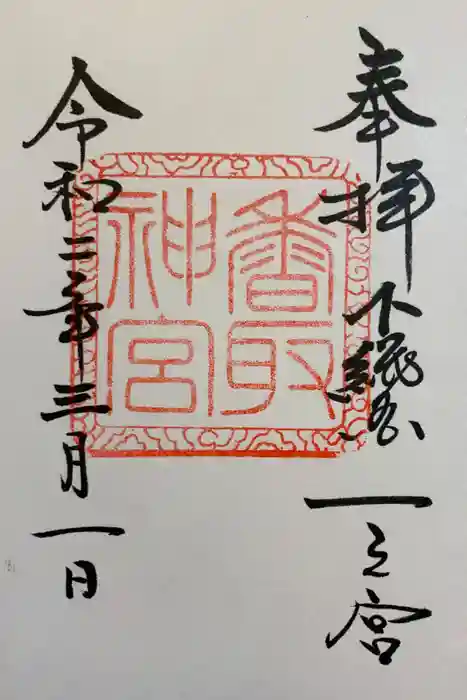 奉拝
下総国
一之宮
香取
神宮
令和二年三月一日